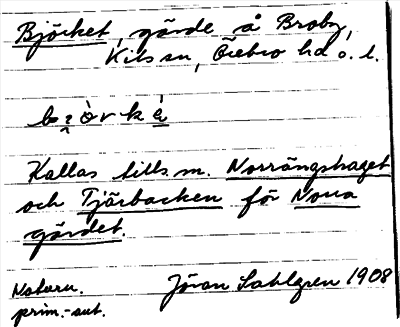 Björket, gärde å Broby,
Kils sn, Örebro hd o. l.
Kallas tills m. Norrängshaget
och Tjärbacken för Norra
gärdet.
Naturn.
prim.-sut.
Jöran Sahlgren 1908